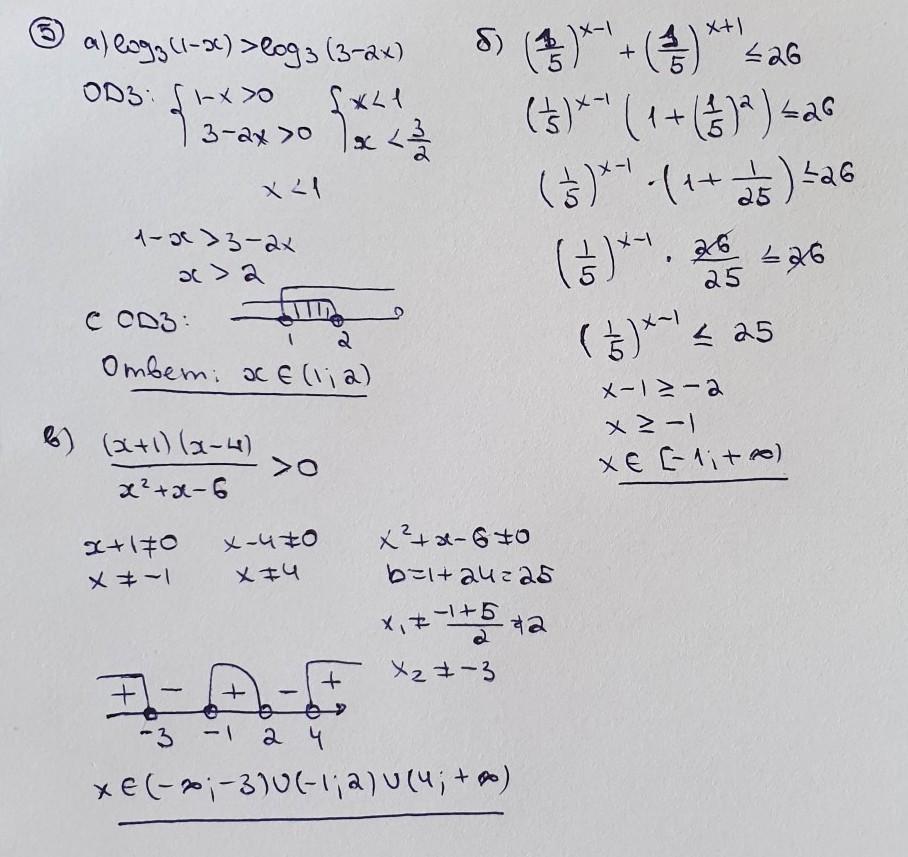 5
а) log₃(1-x) > log₃(3-2x)
ОДЗ: { 1-x > 0 { x < 1
3-2x > 0 x < 3/2
x < 1
1-x > 3-2x
x > 2
С ОДЗ:
1 2
Ответ: x ∈ (1; 2)
б) (1/5)^(x-1) + (1/5)^(x+1) ≤ 26
(1/5)^(x-1) (1 + (1/5)²) ≤ 26
(1/5)^(x-1) · (1 + 1/25) ≤ 26
(1/5)^(x-1) · 26/25 ≤ 26
(1/5)^(x-1) ≤ 25
x-1 ≥ -2
x ≥ -1
x ∈ [-1; +∞)
в) (x+1)(x-4) / (x²+x-6) > 0
x+1≠0 x-4≠0 x²+x-6≠0
x ≠ -1 x ≠ 4 D=1+24=25
x₁ ≠ (-1+5)/2 ≠ 2
x₂ ≠ -3
+ - + - +
-3 -1 2 4
x ∈ (-∞; -3) ∪ (-1; 2) ∪ (4; +∞)